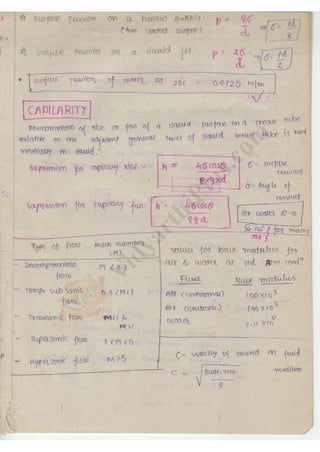 * surface tension on a hollow bubble p = 8σ/d → σ = Pd/8
(two contact surface)
* surface tension on a liquid jet p = 2σ/d → σ = Pd/2
* surface tension of water at 20c = 0.0725 N/m
CAPILARITY
Phenomenon of rise or fall of a liquid surface in a small tube
relative to the adjacent general level of liquid, when tube is held
vertically in liquid.
Expression for capilary rise :- h = 4σcosθ / ρxgxd
σ = surface tension
θ = Angle of contact
Expression for capilary fall:- h = 4σcosθ / ρgd
for water θ=0
for mercury
Type of flow Mach number (M)
- Incompressible flow M < 0.3
- comp. sub sonic flow 0.3<M<1
- Transonic flow M<1 & M>1
- Supersonic flow 1<M<5
- Hypersonic flow M>5
values for bulk modulus for
air & water at std. Atm condn
Fluid Bulk modulus
Air (isothermal) 100 x10³
Air (isentropic) 140 x10³
water
C = velocity of sound in fluid medium
C = √